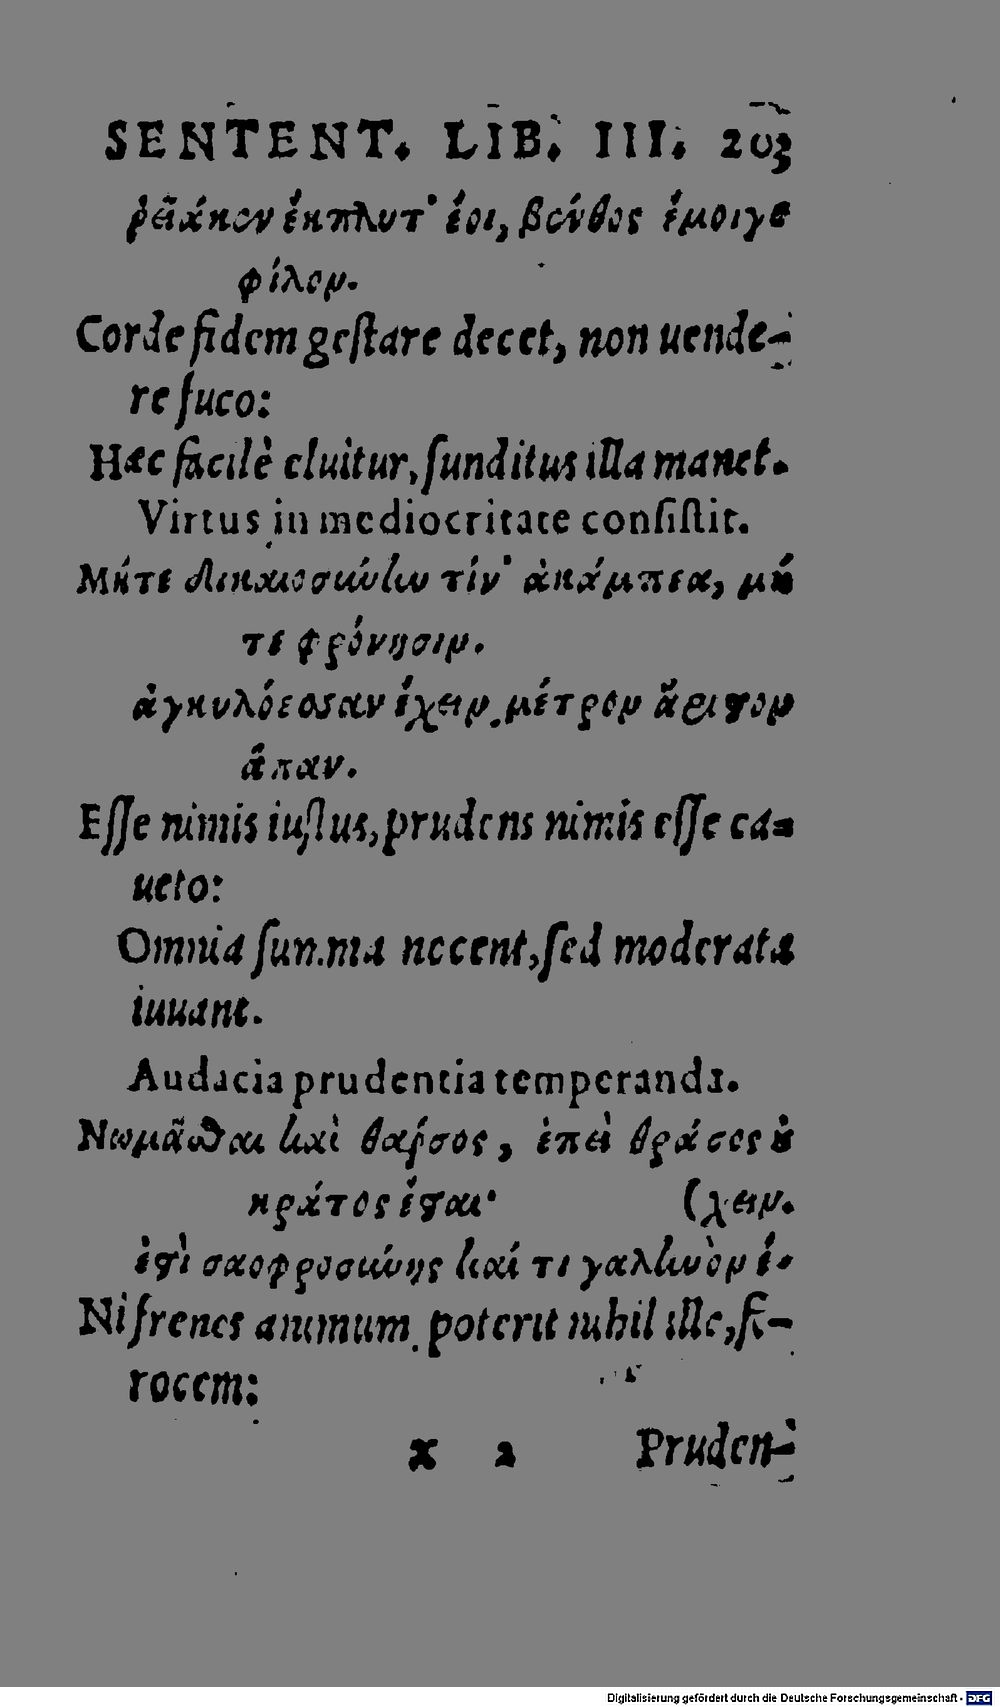 SENTENT. LIB. III. 203
ῥεῖάκον ἔκπλυτ' ἔοι, βένθος ἔμοιγε
φίλον.
Corde fidem geſtare decet, non uende-
re fuco:
Hæc facilè eluitur, funditus illa manet.
Virtus in mediocritate conſiſtit.
Μήτε δικαιοσύνην τίν' ἀκάμπεα, μή
τε φρόνησιν.
ἀγκυλόεσσαν ἔχειν, μέτρον ἄριστον
ἅπαν.
Eſſe nimis iuſtus, prudens nimis eſſe ca-
ueto:
Omnia ſumma nocent, ſed moderata
iuuant.
Audacia prudentia temperanda.
Νωμᾶσθαι καὶ θάρσος, ἐπεὶ θράσος οὐ
κράτος ἔσται· (χειν.
ἐστὶ σαοφροσύνης καί τι γαληνὸν ἔ-
Ni frenes animum, poterit nihil ille, fe-
rocem:
x 2 Pruden-
Digitalisierung gefördert durch die Deutsche Forschungsgemeinschaft - DFG